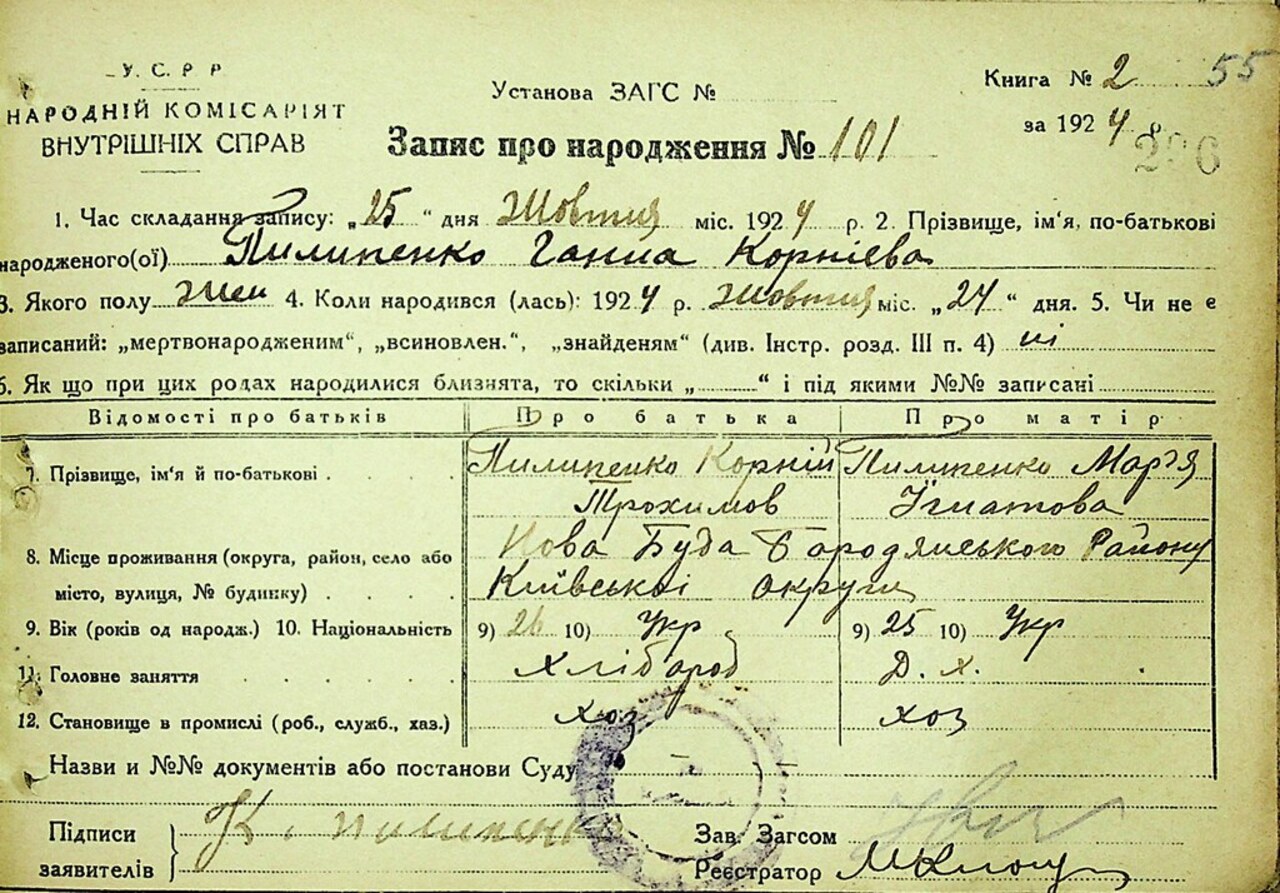 У. С. Р Р
НАРОДНІЙ КОМІСАРІЯТ
ВНУТРІШНІХ СПРАВ
Установа ЗАГС №
Запис про народження № 101
Книга № 2 55
за 1924 р.
1. Час складання запису: „25“ дня Жовтня міс. 1924 р. 2. Прізвище, ім'я, по-батькові
народженого(ої) Пилипенко Ганна Корнієва
3. Якого полу жен 4. Коли народився (лась): 1924 р. Жовтня міс. „24“ дня. 5. Чи не є
записаний: „мертвонародженим“, „всиновлен.“, „знайденям“ (див. Інстр. розд. III п. 4) ні
6. Як що при цих родах народилися близнята, то скільки „ “ і під якими №№ записані
Відомості про батьків Про батька Про матір
7. Прізвище, ім'я й по-батькові Пилипенко Корній Пилипенко Мар'я
Трохимов Ігнатова
8. Місце проживання (округа, район, село або Нова Буда Бородянського Району
місто, вулиця, № будинку) Київської округи
9. Вік (років од народж.) 10. Національність 9) 26 10) Укр 9) 25 10) Укр
11. Головне заняття хлібороб Д. х.
12. Становище в промислі (роб., служб., хаз.) хоз хоз
Назви и №№ документів або постанови Суду
Підписи К. Пилипенко Зав. Загсом
заявителів Реєстратор